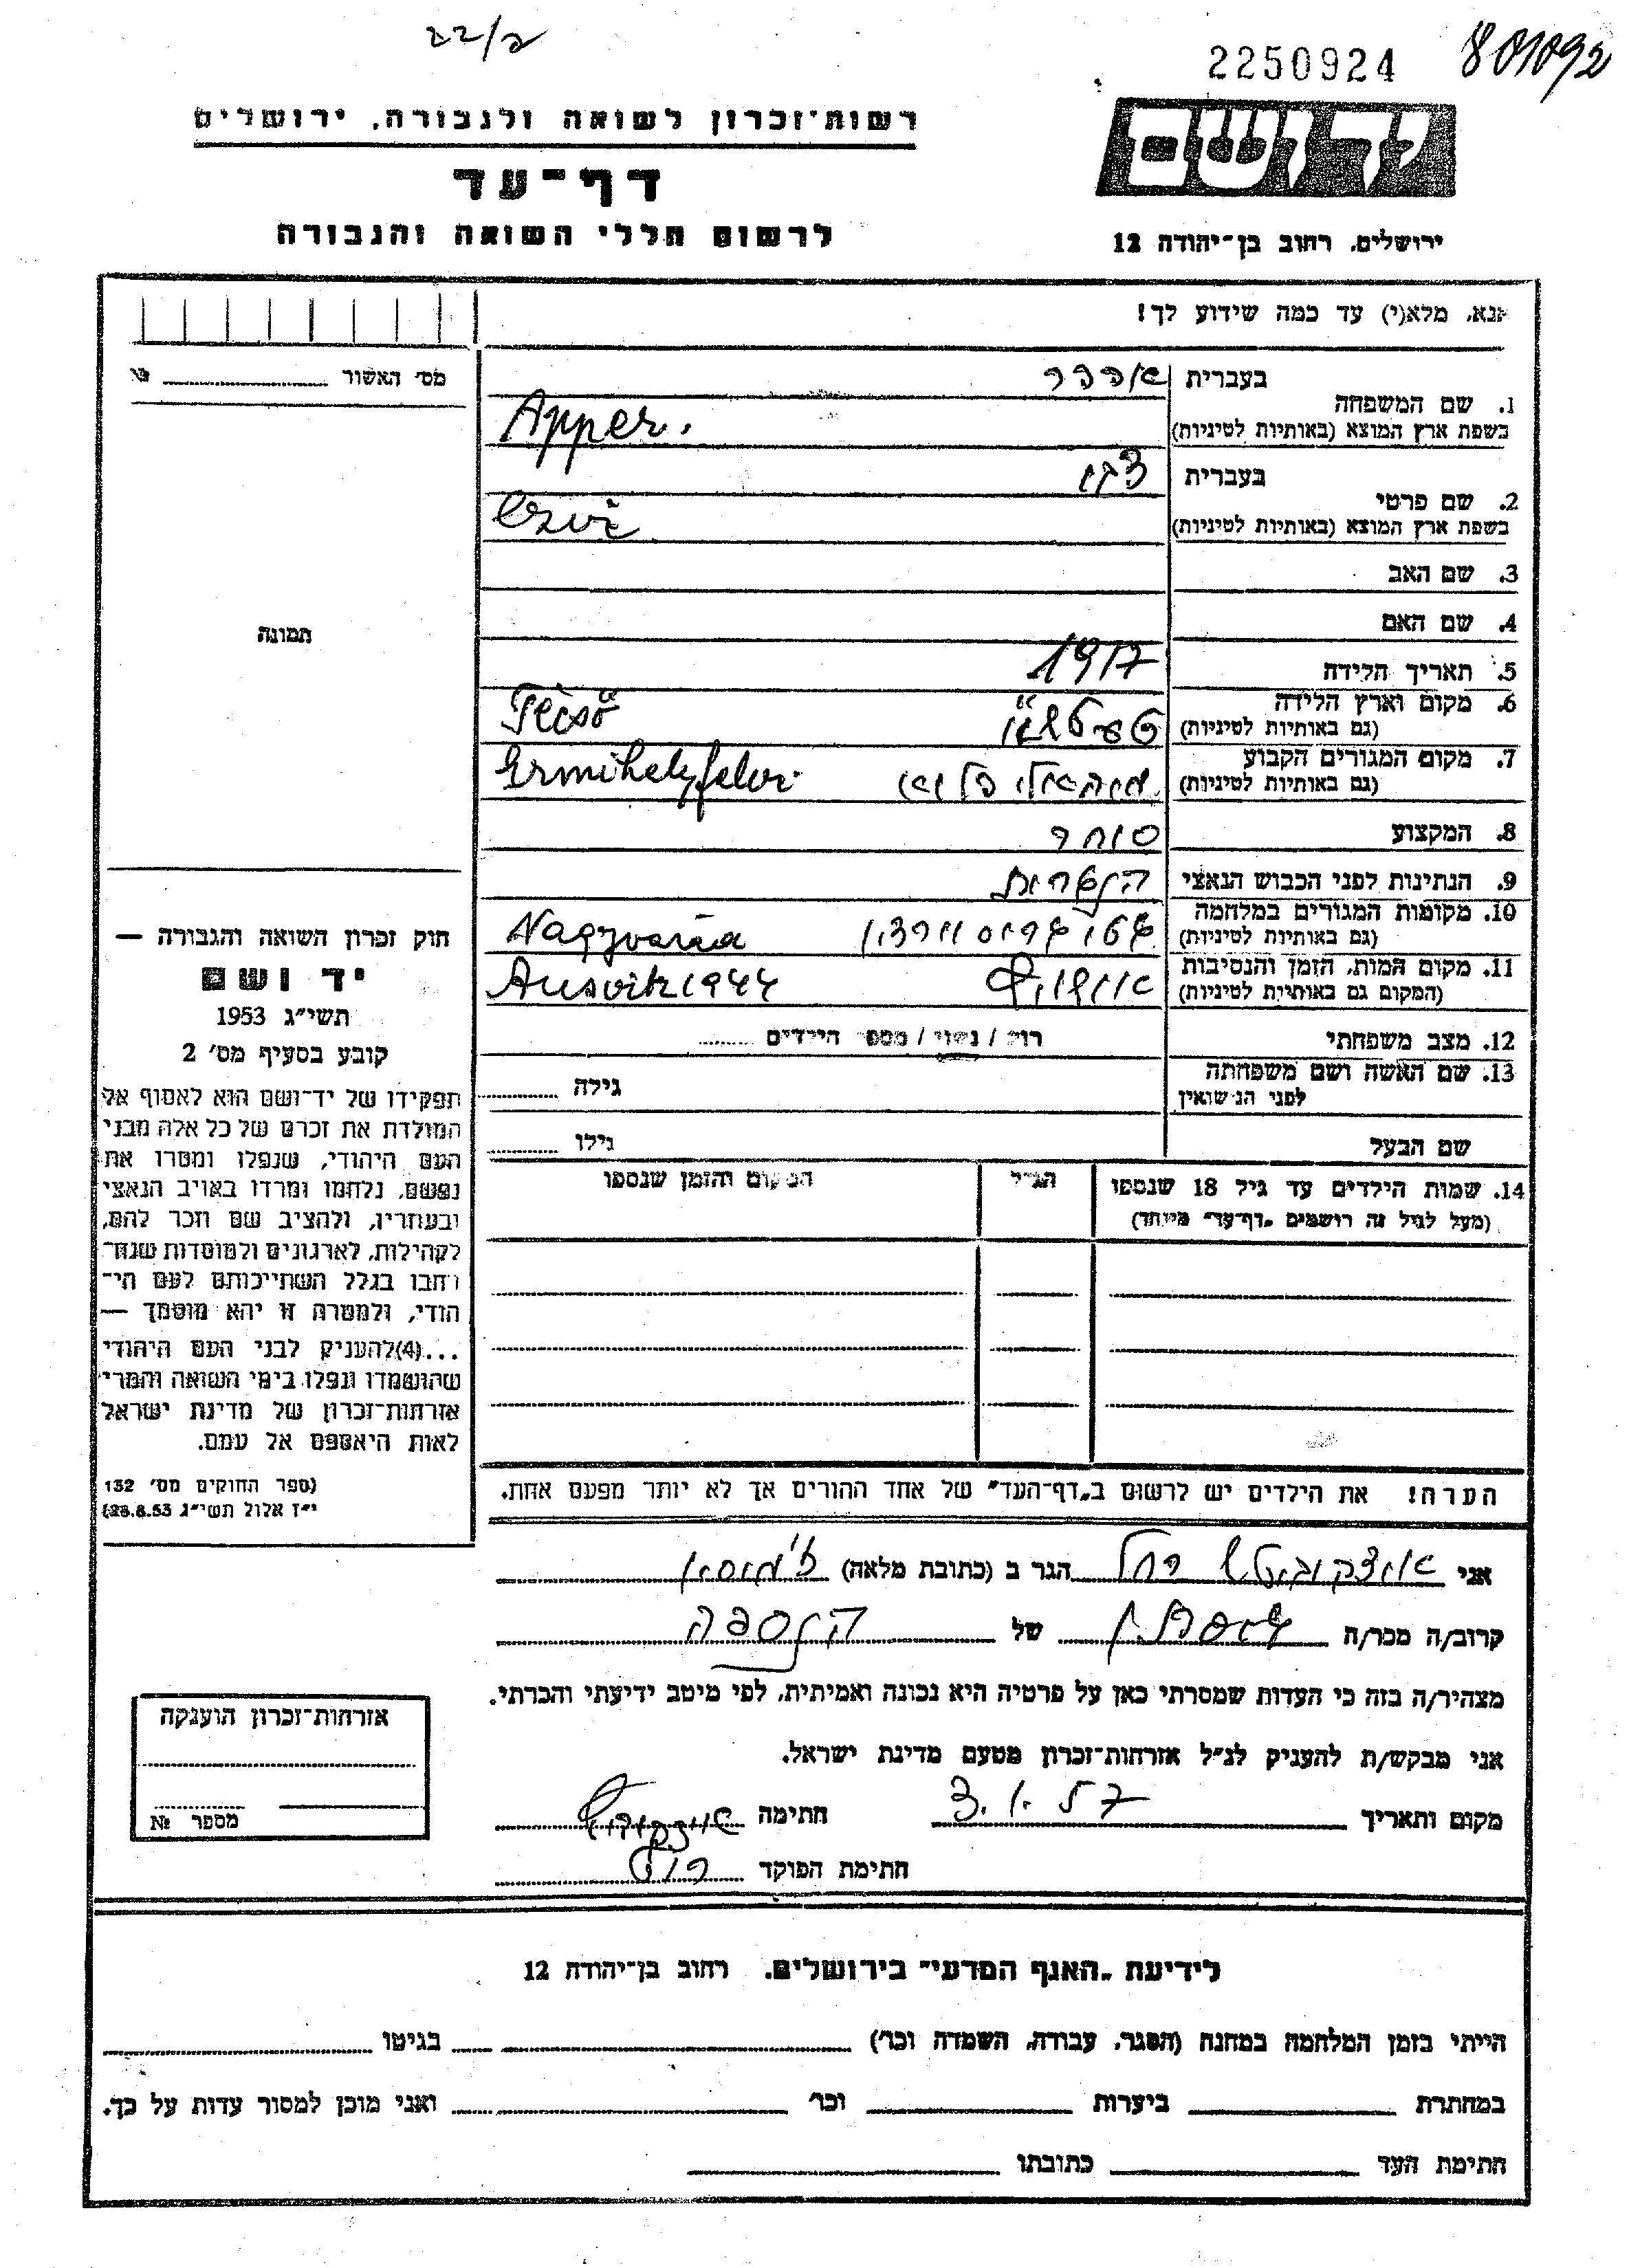 22/2
2250924 801092
ידושם
רשות־זכרון לשואה ולגבורה, ירושלים
דף־עד
לרשום חללי השואה והגבורה
ירושלים, רחוב בן־יהודה 12
אנא, מלא(י) עד כמה שידוע לך!
מס׳ האשור № 
תמונה
1. שם המשפחה בעברית אפפר
בשפת ארץ המוצא (באותיות לטיניות) Apper.
2. שם פרטי בעברית
בשפת ארץ המוצא (באותיות לטיניות)
3. שם האב
4. שם האם
5. תאריך הלידה 1917
6. מקום וארץ הלידה
(גם באותיות לטיניות) Técső
7. מקום המגורים הקבוע
(גם באותיות לטיניות) Ermihelyfalva
8. המקצוע סוחר
9. הנתינות לפני הכבוש הנאצי הונגרית
10. מקומות המגורים במלחמה
(גם באותיות לטיניות) גטו Nagyvárad
11. מקום המות, הזמן והנסיבות
(המקום גם באותיות לטיניות) אושויץ Ausvitz 1944
12. מצב משפחתי רווק / נשוי / מספר הילדים
13. שם האשה ושם משפחתה
לפני הנישואין גילה
שם הבעל גילו
14. שמות הילדים עד גיל 18 שנספו הגיל המקום והזמן שנספו
(מעל לגיל זה רושמים „דף־עד״ מיוחד)
חוק זכרון השואה והגבורה —
יד ושם
תשי״ג 1953
קובע בסעיף מס׳ 2
תפקידו של יד־ושם הוא לאסוף אל
המולדת את זכרם של כל אלה מבני
העם היהודי, שנפלו ומסרו את
נפשם, נלחמו ומרדו באויב הנאצי
ובעוזריו, ולהציב שם וזכר להם,
לקהילות, לארגונים ולמוסדות שנח־
רבו בגלל השתייכותם לעם הי־
הודי, ולמטרה זו יהא מוסמך —
...(4)להעניק לבני העם היהודי
שהושמדו ונפלו בימי השואה והמרי
אזרחות־זכרון של מדינת ישראל
לאות היאספם אל עמם.
(ספר החוקים מס׳ 132
י״ז אלול תשי״ג 28.8.53)
הערה! את הילדים יש לרשום ב„דף־העד״ של אחד ההורים אך לא יותר מפעם אחת.
אני רחל הגר ב (כתובת מלאה)
קרוב/ה מכר/ה של הנספה
מצהיר/ה בזה כי העדות שמסרתי כאן על פרטיה היא נכונה ואמיתית, לפי מיטב ידיעתי והכרתי.
אני מבקש/ת להעניק לנ״ל אזרחות־זכרון מטעם מדינת ישראל.
מקום ותאריך חתימה
חתימת הפוקד
אזרחות־זכרון הוענקה
מספר №
לידיעת „האגף המדעי״ בירושלים, רחוב בן־יהודה 12
הייתי בזמן המלחמה במחנה (הסגר, עבודה, השמדה וכו׳) בגיטו
במחתרת ביערות וכו׳ ואני מוכן למסור עדות על כך.
חתימת העד כתובתו